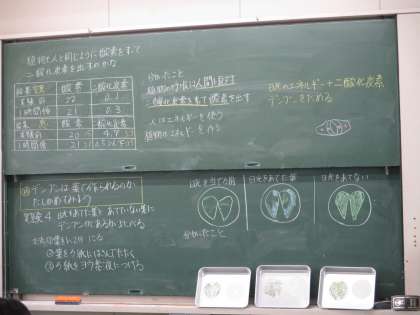 植物も人と同じように酸素をすって
二酸化炭素を出すのかな
酸素 二酸化炭素
実験前 22 0.1
1時間後 21 0.3
酸素 二酸化炭素
実験前 20
1時間後 21
分かったこと
二酸化炭素をすって酸素を出す
人はエネルギーを使う
植物はエネルギーを作る
日光のエネルギー+二酸化炭素
デンプンをためる
デンプンは葉で作られるのか
たしかめてみよう
実験4 日光をあてた葉とあてていない葉に
デンプンがあるかしらべる
②葉をろ紙にはさんでたたく
③ろ紙をヨウ素液につける
日光を当てる前
日光をあてた葉
日光をあてない
分かったこと